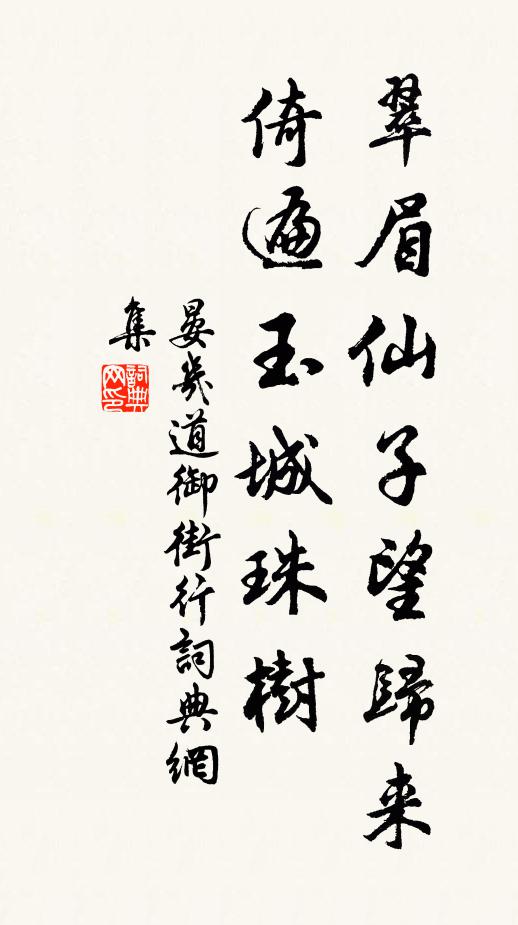 翠眉仙子望歸来
倚遍玉城珠樹
晏幾道御街行詞典網
集
詞典
网印